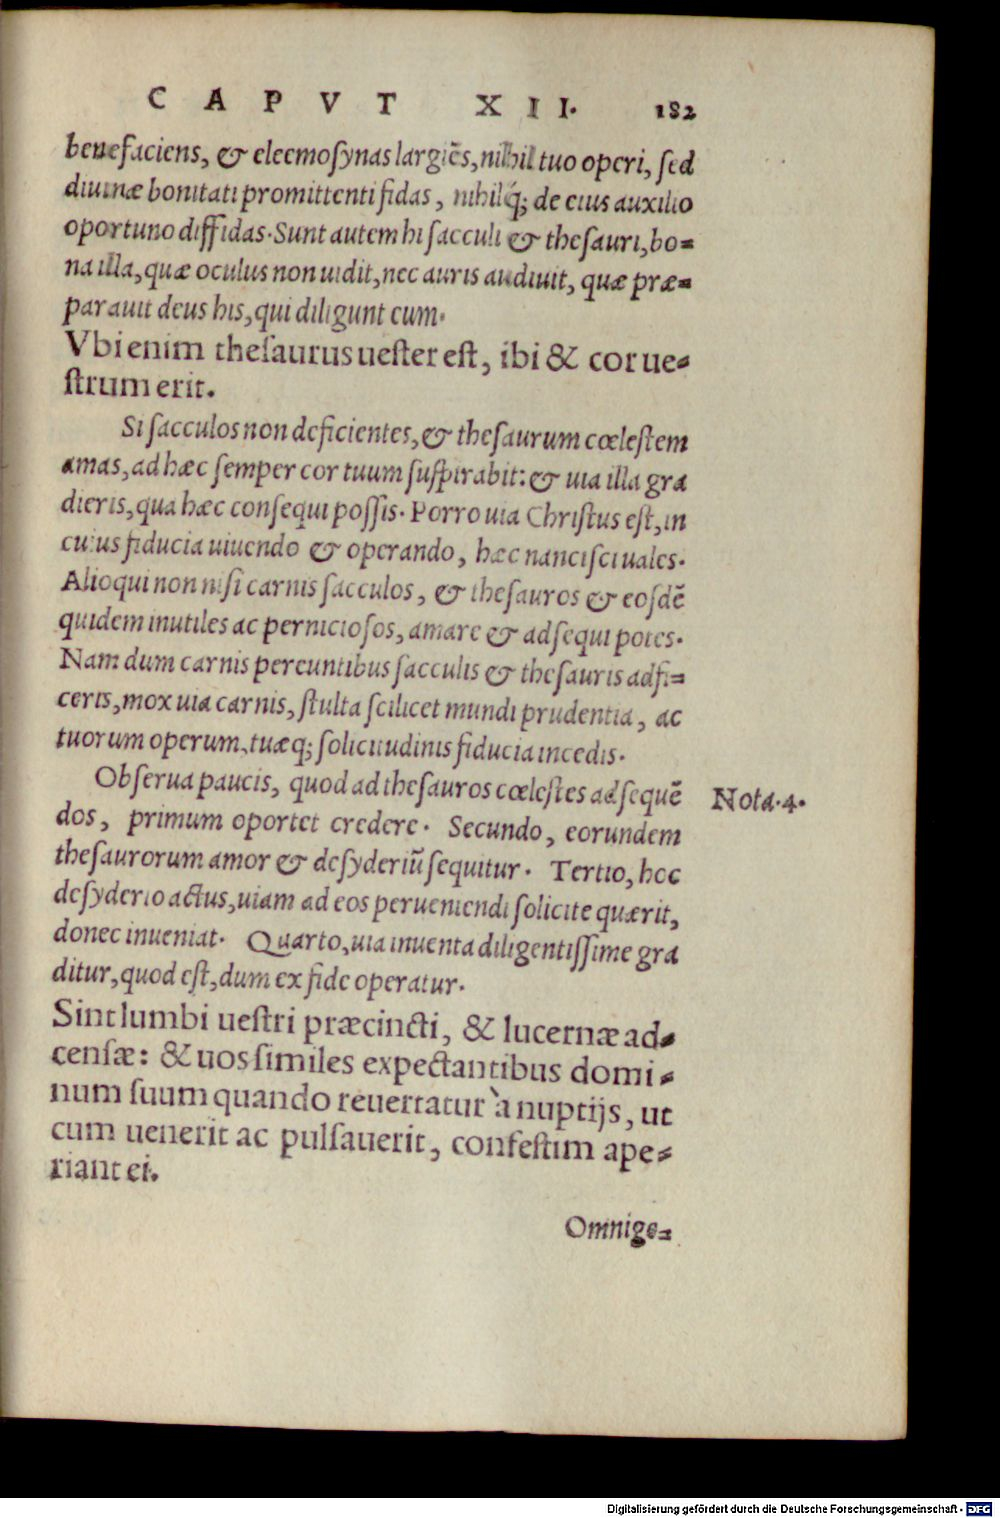 CAPVT XII. 182
benefaciens, & eleemosynas largiẽs, nihil tuo operi, sed
diuinæ bonitati promittenti fidas, nihilq́; de eius auxilio
oportuno diffidas. Sunt autem hi sacculi & thesauri, bo=
na illa, quæ oculus non uidit, nec auris audiuit, quæ præ=
parauit deus his, qui diligunt eum.
Vbi enim thesaurus uester est, ibi & cor ue=
strum erit.
Si sacculos non deficientes, & thesaurum cœlestem
amas, ad hæc semper cor tuum suspirabit: & uia illa gra
dieris, qua hæc consequi possis. Porro uia Christus est, in
cuius fiducia uiuendo & operando, hæc nancisci uales.
Alioqui non nisi carnis sacculos, & thesauros & eosdẽ
quidem inutiles ac perniciosos, amare & adsequi potes.
Nam dum carnis pereuntibus sacculis & thesauris adfi=
ceris, mox uia carnis, stulta scilicet mundi prudentia, ac
tuorum operum, tuæq; solicitudinis fiducia incedis.
Obserua paucis, quod ad thesauros cœlestes adsequẽ
dos, primum oportet credere. Secundo, eorundem
thesaurorum amor & desyderiũ sequitur. Tertio, hoc
desyderio actus, uiam ad eos perueniendi solicite quærit,
donec inueniat. Quarto, uia inuenta diligentissime gra
ditur, quod est, dum ex fide operatur.
Nota. 4.
Sint lumbi uestri præcincti, & lucernæ ad=
censæ: & uos similes expectantibus domi=
num suum quando reuertatur à nuptijs, ut
cum uenerit ac pulsauerit, confestim ape=
riant ei.
Omnige=
Digitalisierung gefördert durch die Deutsche Forschungsgemeinschaft - DFG